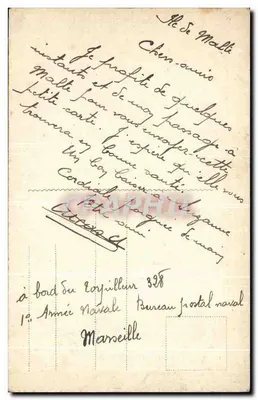 Ile de Malte
Chers amis
Je profite de quelques
instants et de mon passage à
Malte pour vous envoyer cette
petite carte. J'espère qu'elle vous
trouvera en bonne santé.
Un bon baiser à Suzanne
cordiale poigne de main
à bord du torpilleur 328
1e Armée Navale Bureau postal naval
Marseille